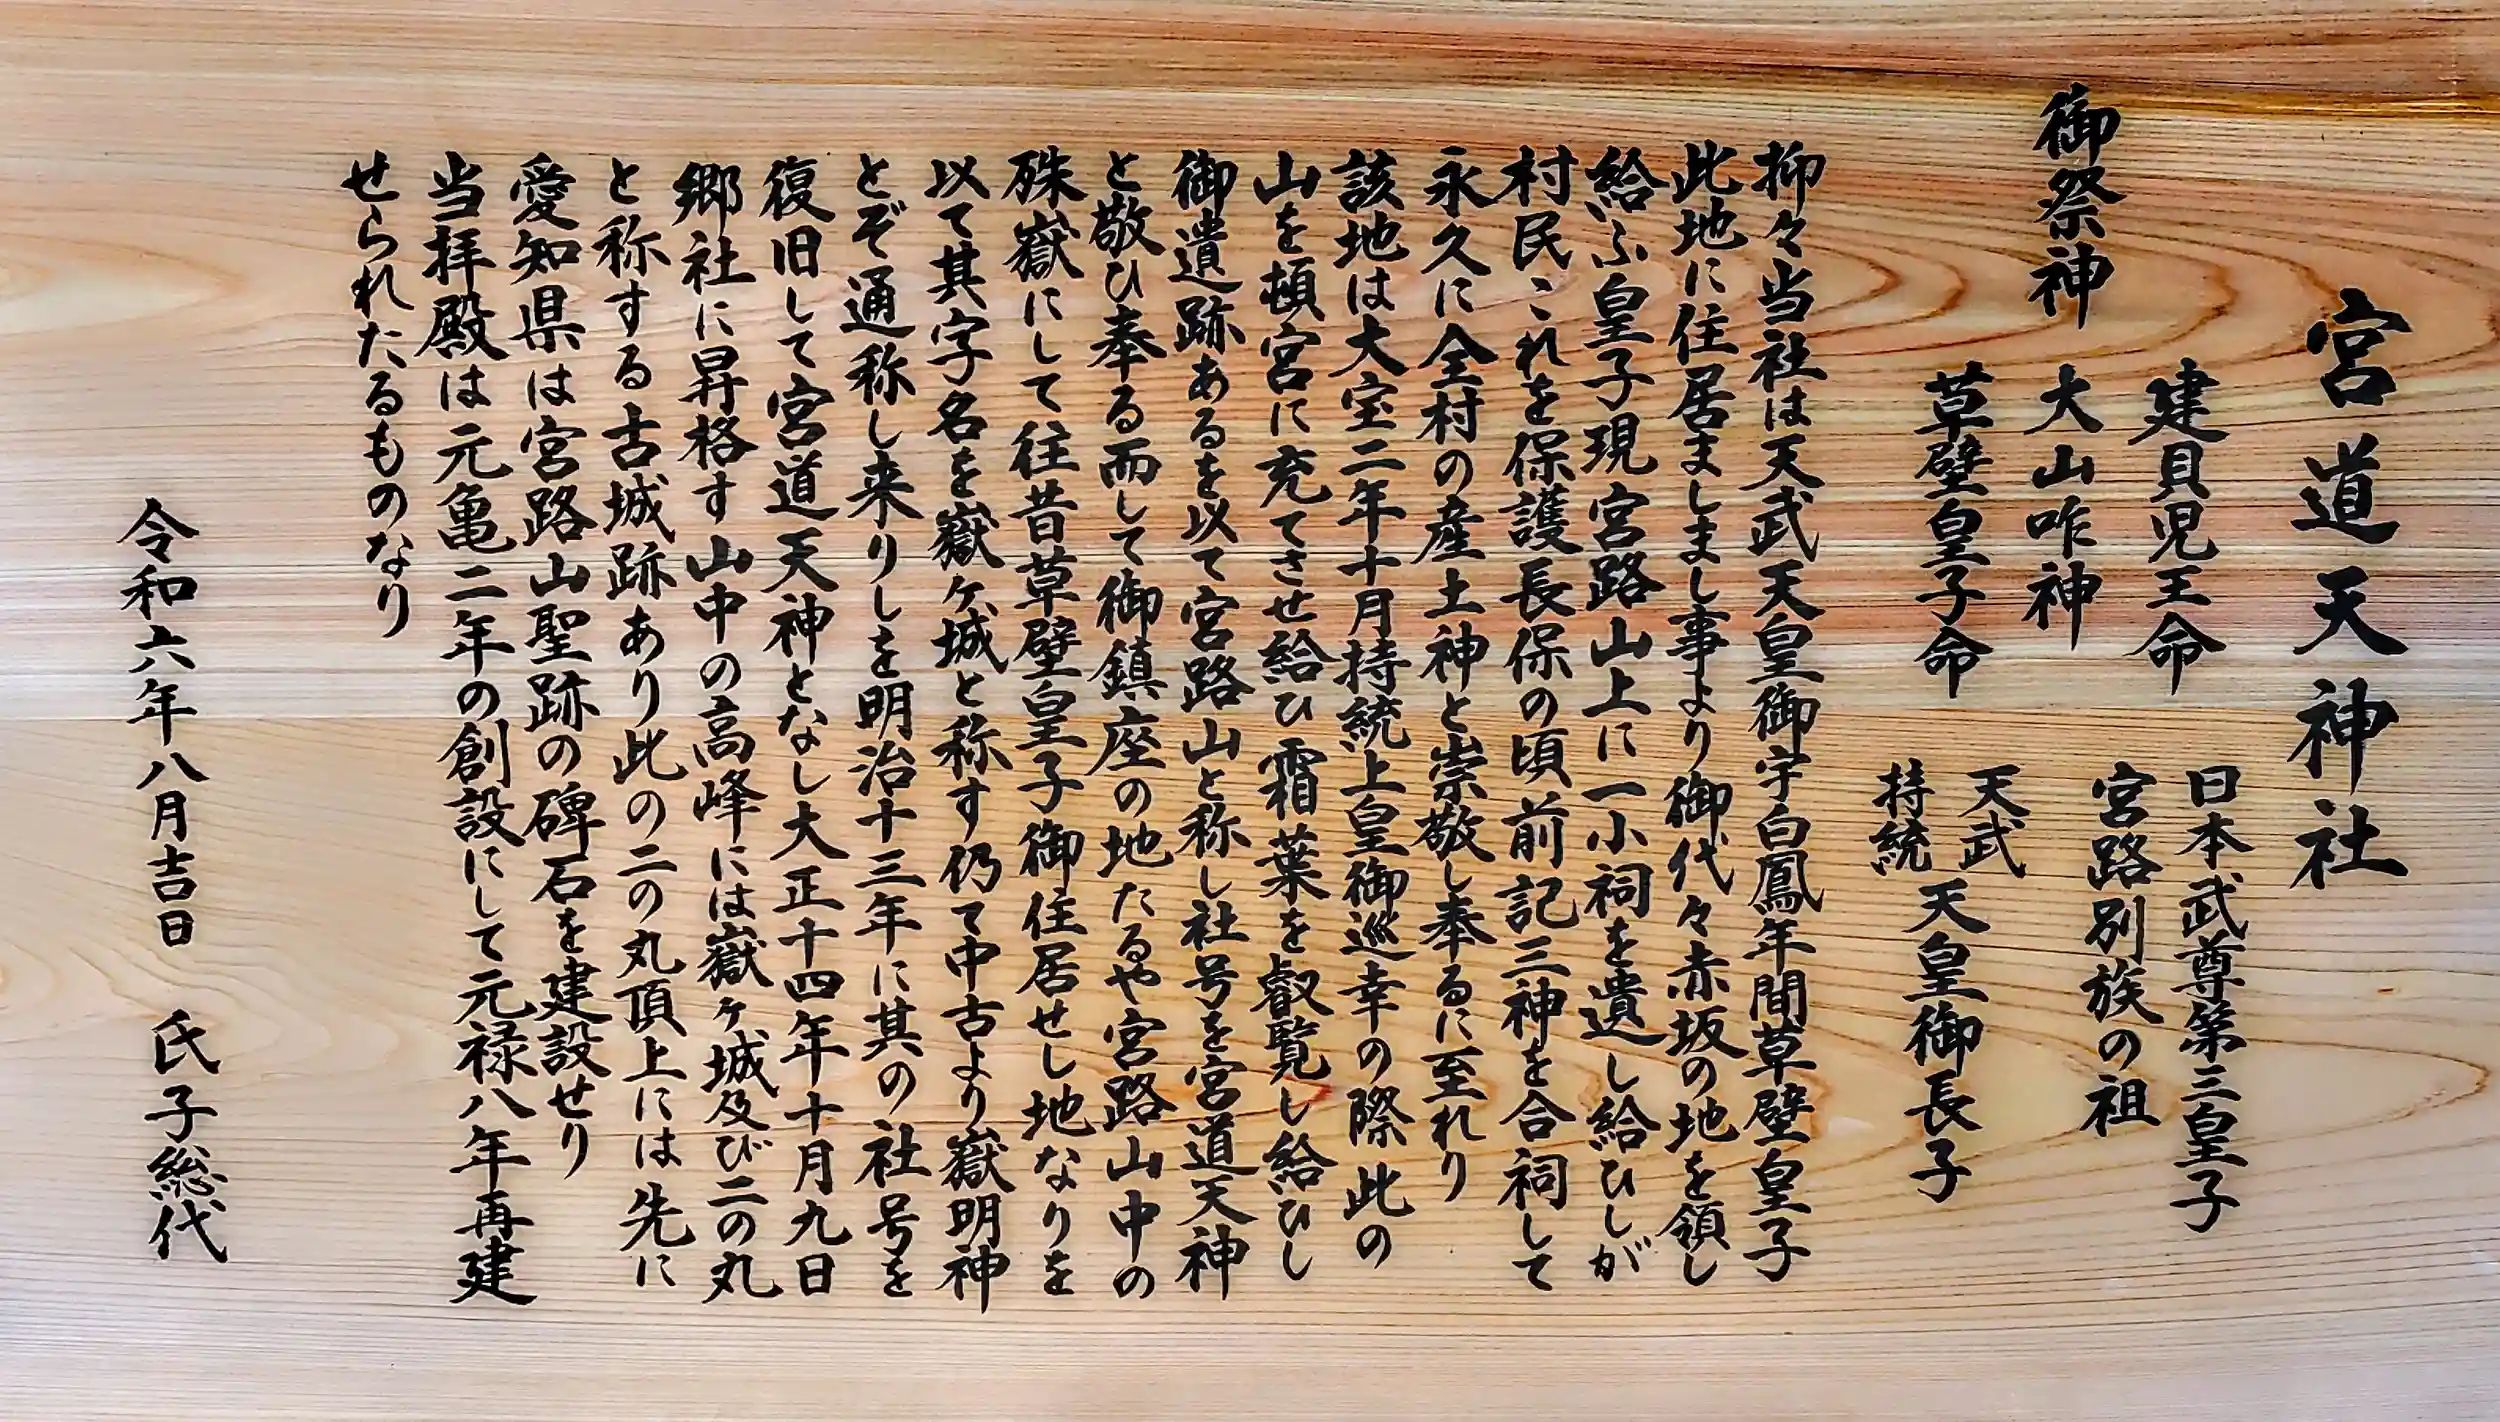 宮道天神社
御祭神
建貝児王命 日本武尊第三皇子
宮路別族の祖
大山咋神
草壁皇子命 天武
持統 天皇御長子
抑々当社は天武天皇御宇白鳳年間草壁皇子
此地に住居ましまし事より御代々赤坂の地を領し
給ふ皇子現宮路山上に一小祠を遺し給ひしが
村民これを保護長保の頃前記三神を合祠して
永久に全村の産土神と崇敬し奉るに至れり
該地は大宝二年十月持統上皇御巡幸の際此の
山を頓宮に充てさせ給ひ霜葉を叡覧し給ひし
御遺跡あるを以て宮路山と称し社号を宮道天神
と敬ひ奉る而して御鎮座の地たるや宮路山中の
殊嶽にして往昔草壁皇子御住居せし地なりを
以て其字名を嶽ヶ城と称す仍て中古より嶽明神
とぞ通称し来りしを明治十三年に其の社号を
復旧して宮道天神となし大正十四年十月九日
郷社に昇格す山中の高峰には嶽ヶ城及び二の丸
と称する古城跡あり此の二の丸頂上には先に
愛知県は宮路山聖跡の碑石を建設せり
当拝殿は元亀二年の創設にして元禄八年再建
せられたるものなり
令和六年八月吉日 氏子総代